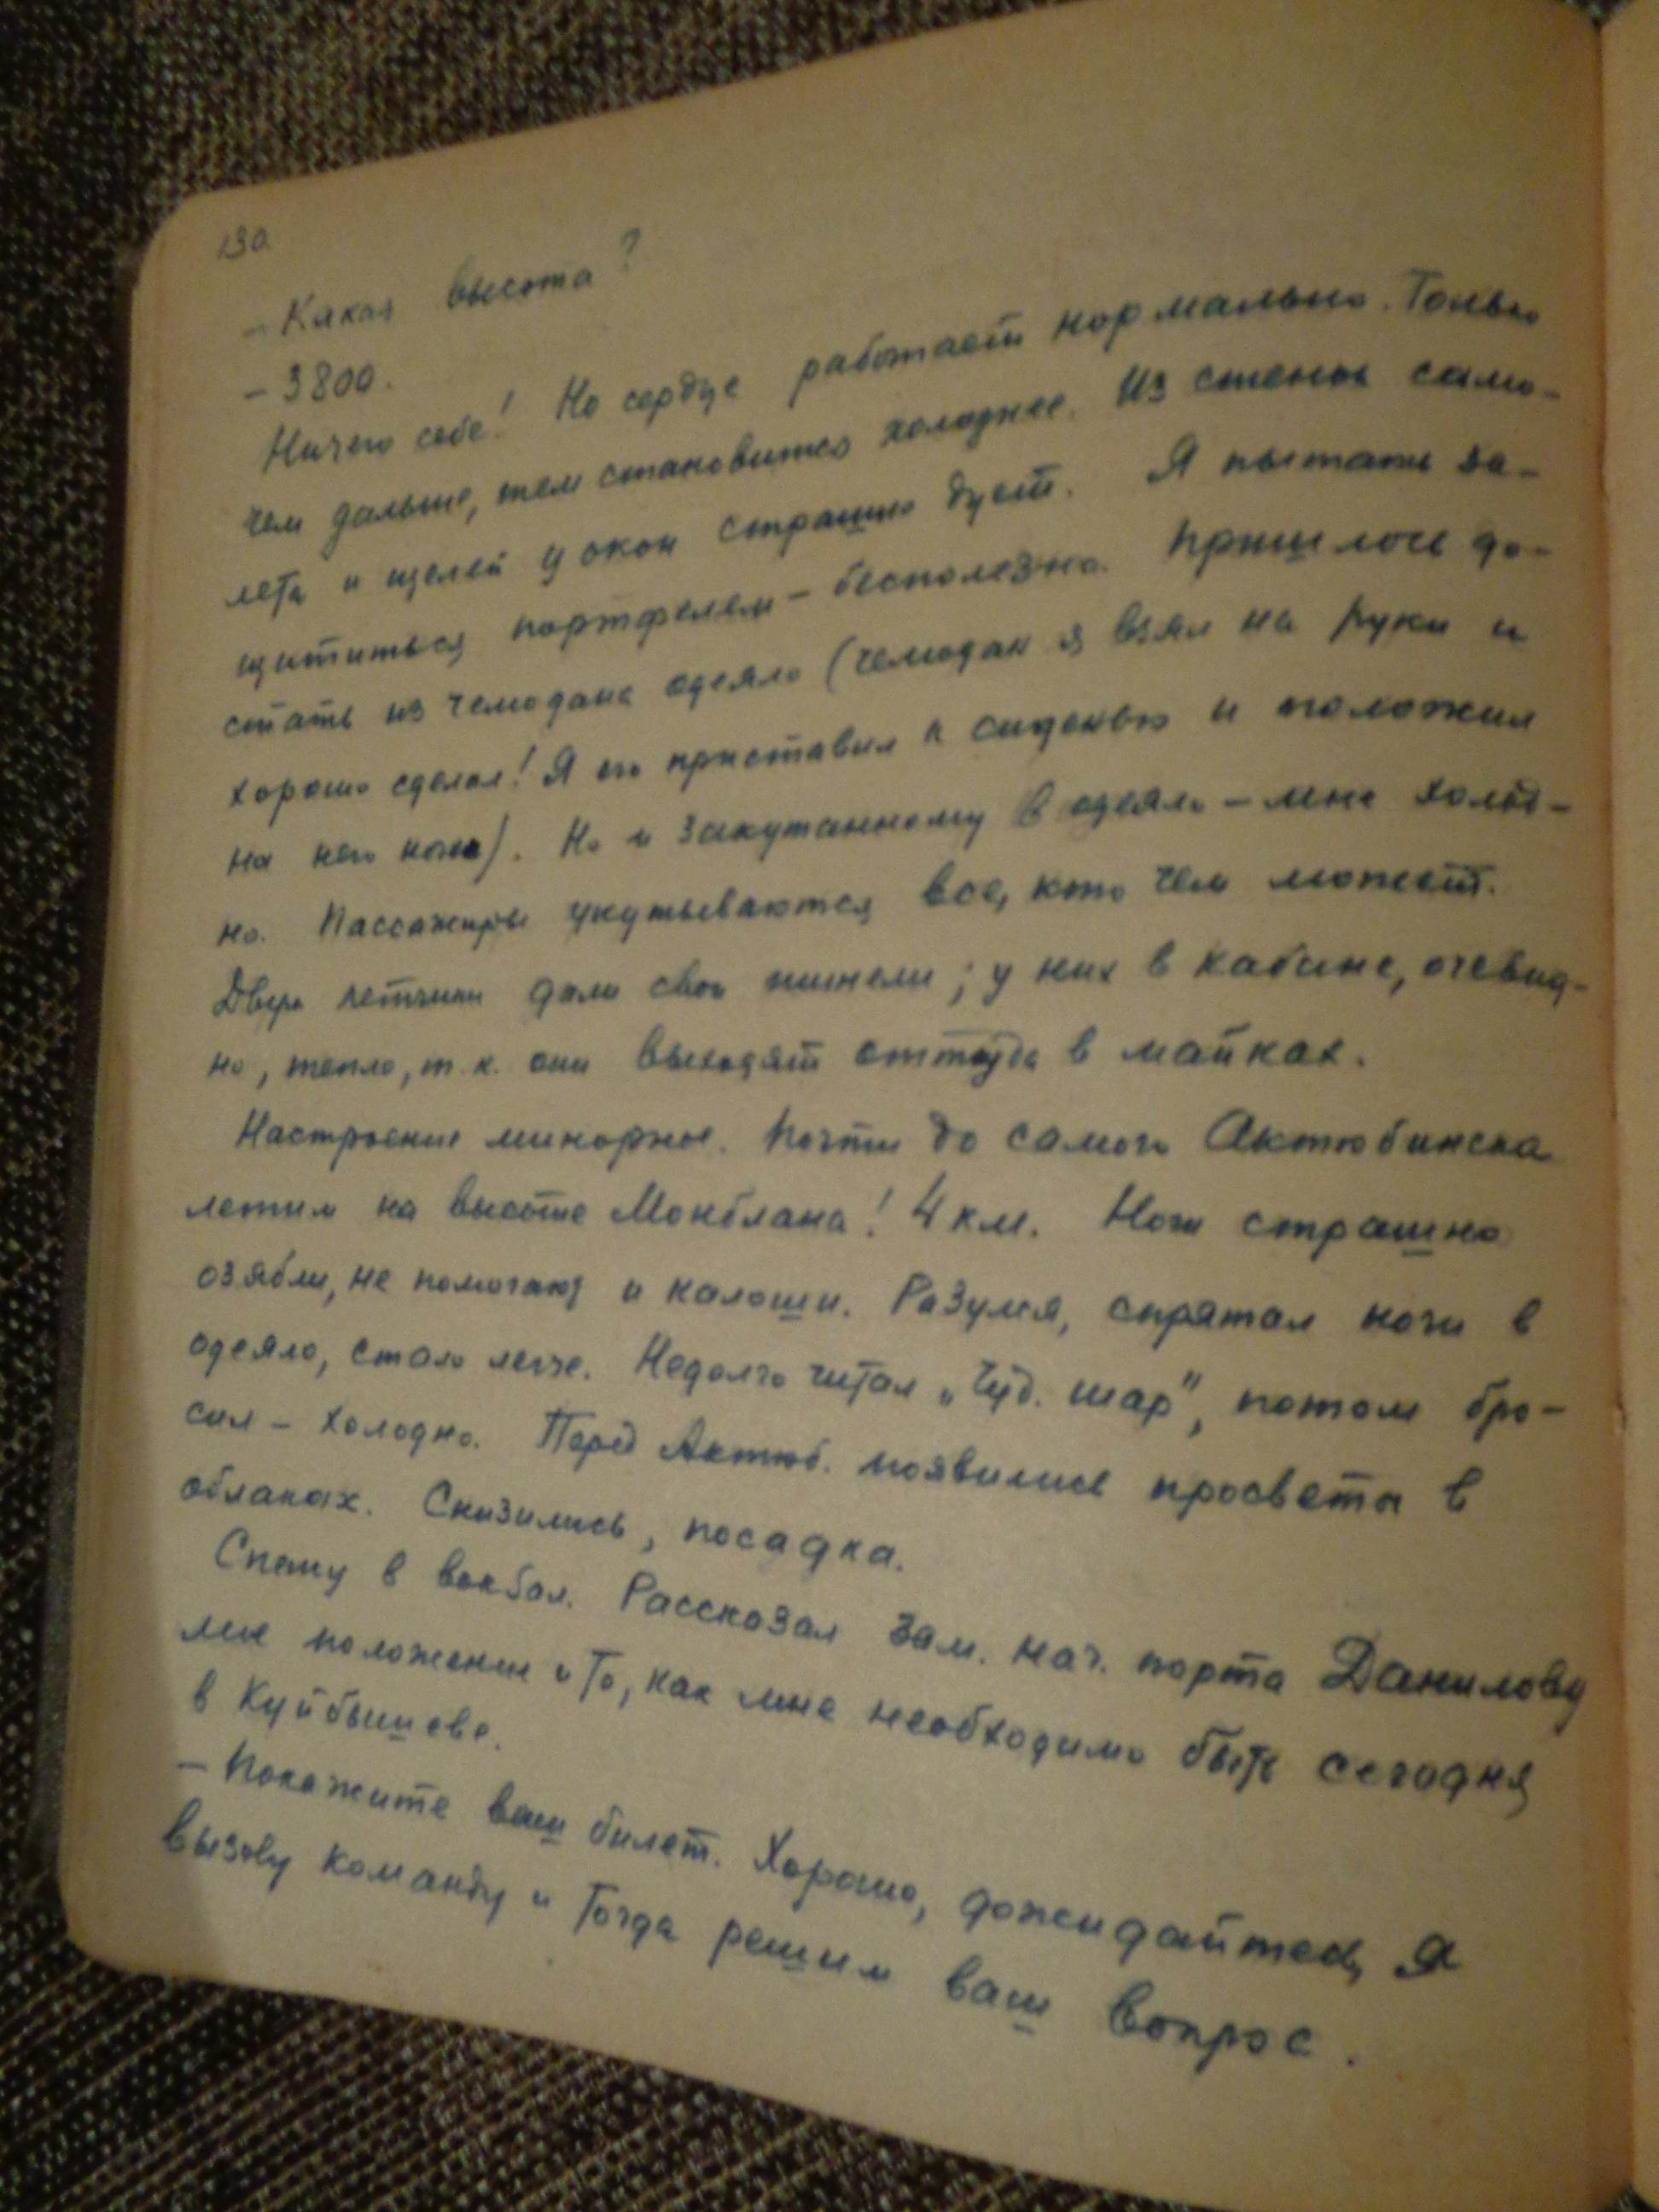 130
- Какая высота?
- 3800.
Ничего себе! Но сердце работает нормально. Только
чем дальше, тем становится холоднее. Из стенок само-
лета и щелей у окон страшно дует. Я пытаюсь за-
щититься портфелем - бесполезно. Пришлось до-
стать из чемодана одеяло (чемодан я взял на руки и
хорошо сделал! Я его приставил к сиденью и положил
на него ноги). Но и закутанному в одеяло - мне холод-
но. Пассажиры укутываются все, кто чем может.
Двум летчики дали свои шинели; у них в кабине, очевид-
но, тепло, т.к. они выходят оттуда в майках.
Настроение минорное. Почти до самого Актюбинска
летим на высоте Монблана! 4 км. Ноги страшно
озябли, не помогают и калоши. Разулся, спрятал ноги в
одеяло, стало легче. Недолго читал „Чуд. шар", потом бро-
сил - холодно. Перед Актюб. появились просветы в
облаках. Снизились, посадка.
Спешу в вокзал. Рассказал зам. нач. порта Данилову
мое положение и то, как мне необходимо быть сегодня
в Куйбышеве.
- Покажите ваш билет. Хорошо, дожидайтесь, я
вызову команду и тогда решим ваш вопрос.